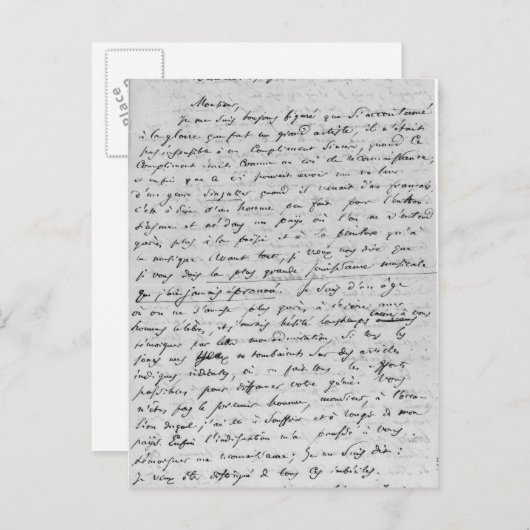 Monsieur,
Je me suis toujours figuré que si accoutumé
à la gloire que fut un grand artiste, il n'était
pas insensible à un compliment sincère, quand ce
compliment était comme un cri de reconnaissance,
et enfin que ce cri pouvait avoir une valeur
d'un genre singulier quand il venait d'un français
c'est à dire d'un homme peu fait pour l'enthou-
siasme et né dans un pays où l'on ne s'entend
guères plus à la poésie et à la peinture qu'à
la musique. Avant tout, je veux vous dire que
je vous dois la plus grande jouissance musicale
que j'aie jamais éprouvée. Je suis d'un âge
où on ne s'amuse plus guères à écrire aux
hommes célèbres, et j'aurais hésité longtemps encore à vous
témoigner par lettre mon admiration, si tous les
jours mes yeux ne tombaient sur des articles
indignes, ridicules, où on fait tous les efforts
possibles pour diffamer votre génie. Vous
n'êtes pas le premier homme, monsieur, à l'occa-
sion duquel j'ai eu à souffrir et à rougir de mon
pays. Enfin l'indignation m'a poussé à vous
témoigner ma reconnaissance; je me suis dit:
je veux être distingué de tous ces imbéciles.
zazzle